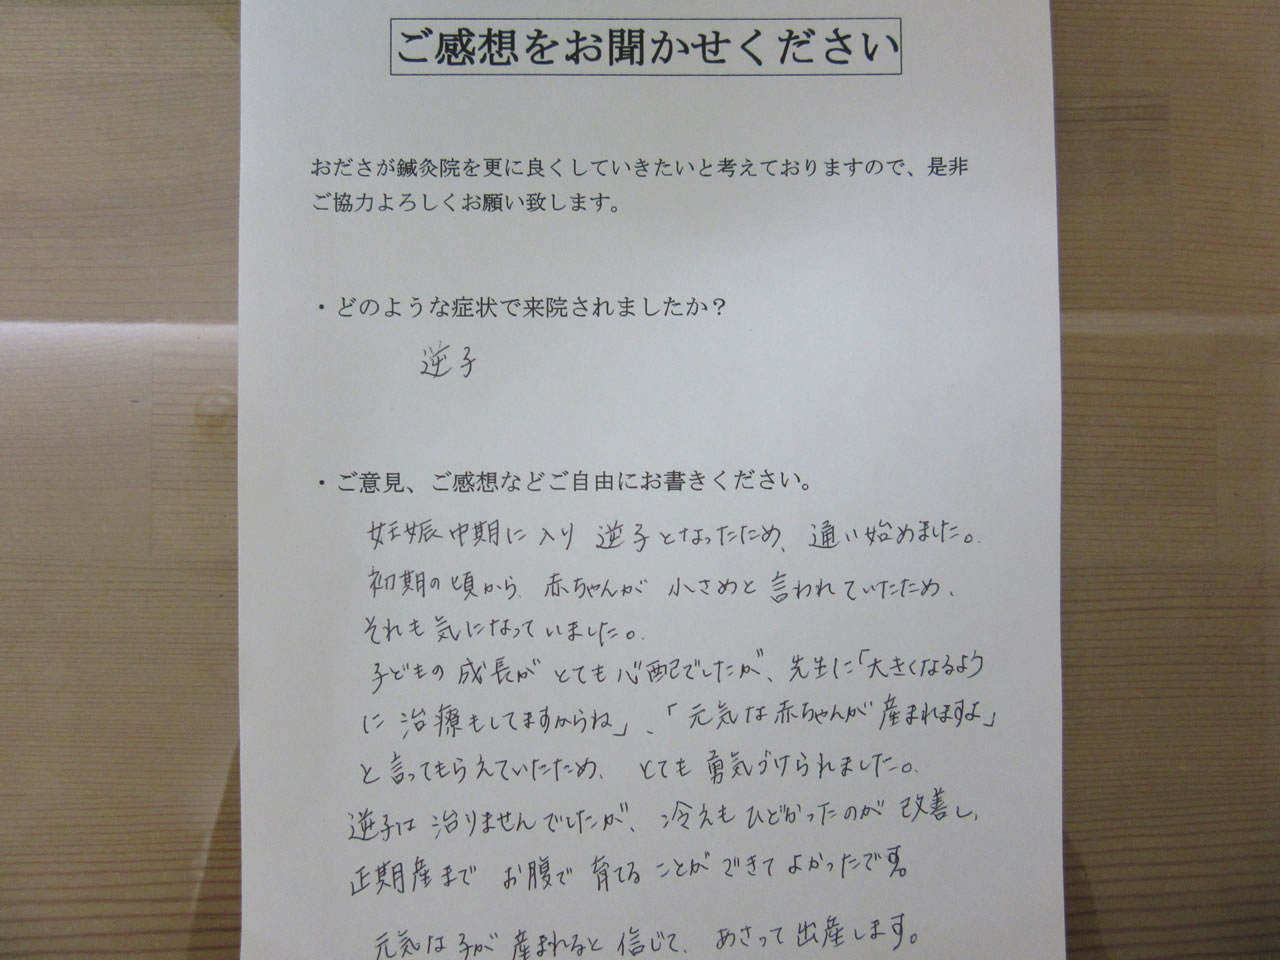 ご感想をお聞かせください
おださが鍼灸院を更に良くしていきたいと考えておりますので、是非
ご協力よろしくお願い致します。
・どのような症状で来院されましたか？
逆子
・ご意見、ご感想などご自由にお書きください。
妊娠中期に入り 逆子となったため、通い始めました。
初期の頃から、赤ちゃんが 小さめと言われていたため、
それも気になっていました。
子どもの成長が とても心配でしたが、先生に「大きくなるよう
に治療もしてますからね」、「元気な赤ちゃんが産まれますよ」
と言ってもらえていたため、とても勇気づけられました。
逆子は治りませんでしたが、冷えもひどかったのが改善し、
正期産まで お腹で育てることができてよかったです。
元気な子が産まれると信じて、あさって出産します。